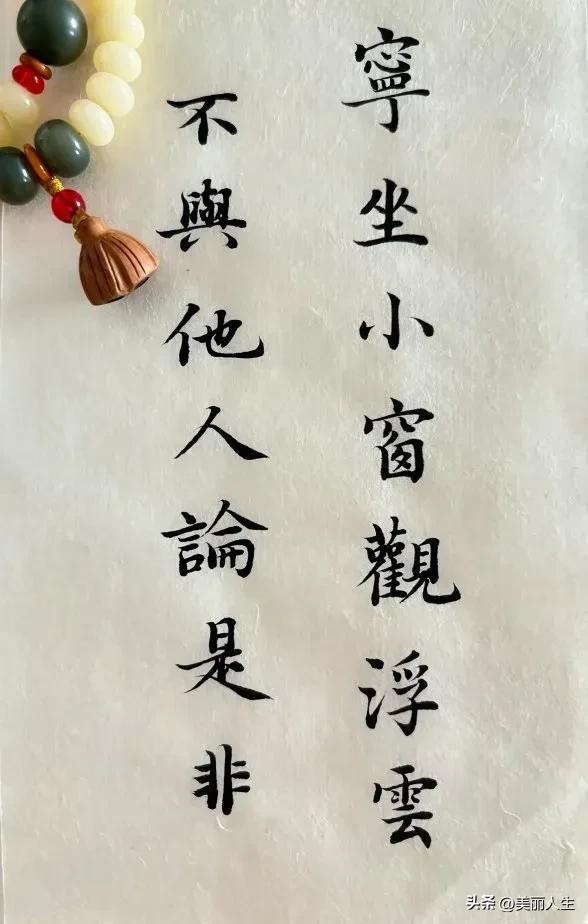 寧坐小窗觀浮雲
不與他人論是非
头条 @美丽人生